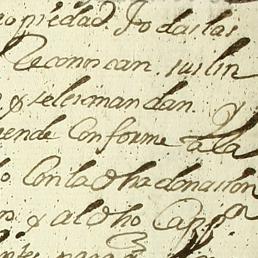 propiedad Todas las
Reconoscan, sus lin
y se les mandan y
ende Conforme a la
lo Con la dha donasion
y al dho Cappn